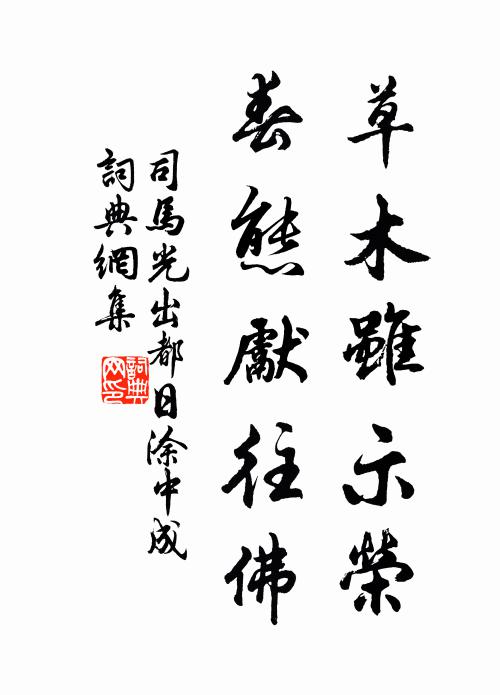 草木雖示榮
春態獻往佛
司馬光出都日涂中成
詞典網集
詞典
网印